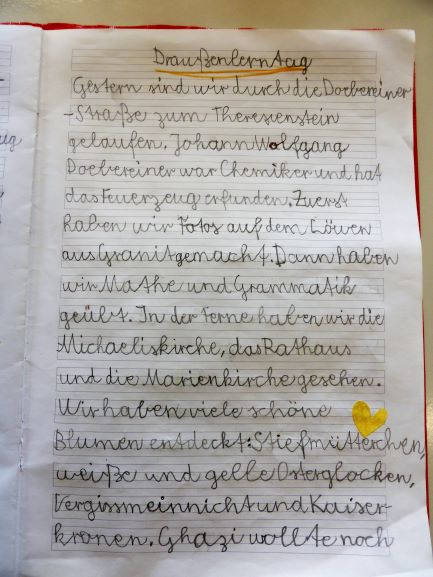 Draußenlerntag
Gestern sind wir durch die Doebereiner
-Straße zum Theresenstein
gelaufen. Johann Wolfgang
Doebereiner war Chemiker und hat
das Feuerzeug erfunden. Zuerst
haben wir Fotos auf dem Löwen
aus Granit gemacht. Dann haben
wir Mathe und Grammatik
geübt. In der Ferne haben wir die
Michaeliskirche, das Rathaus
und die Marienkirche gesehen.
Wir haben viele schöne
Blumen entdeckt: Stiefmütterchen,
weiße und gelle Osterglocken,
Vergissmeinnicht und Kaiser-
kronen. Ghazi wollte noch